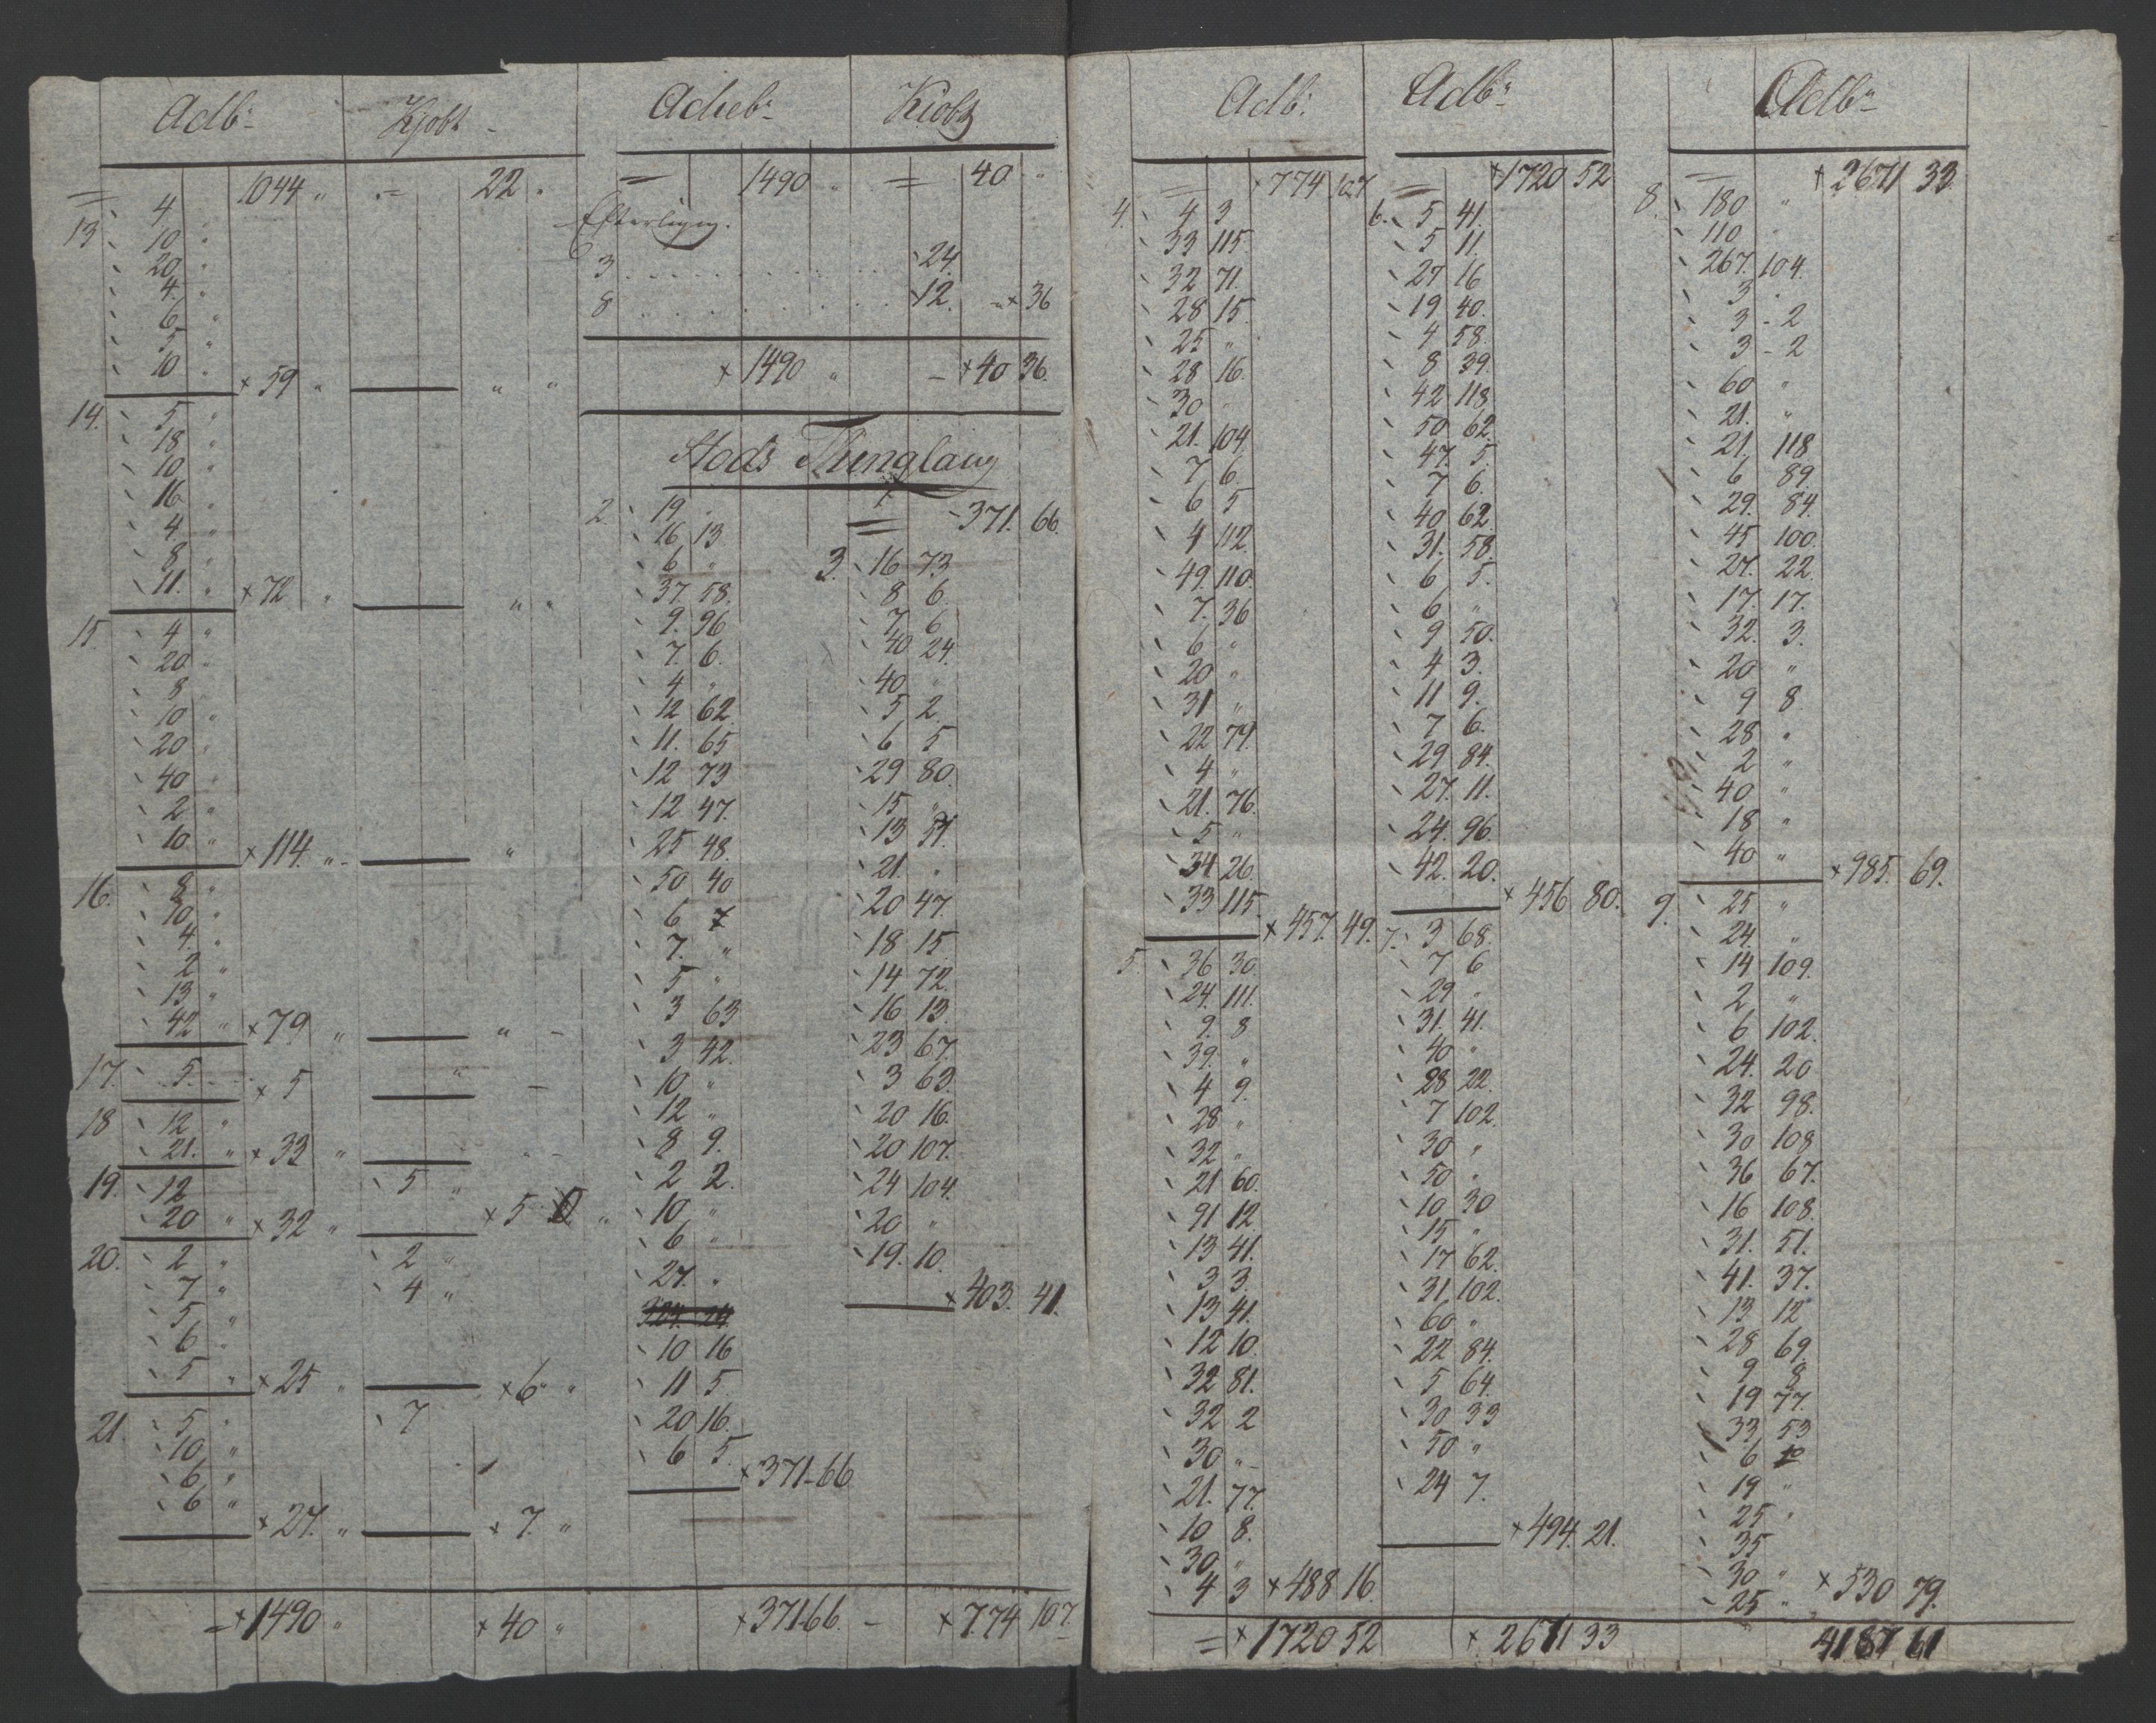 Adb:
Kjobt
1044 " = 22 "
4 "
13 10 "
20 "
4 "
6 "
5 "
10 "
× 59 " " "
14. 5 "
18 "
10 "
16 "
4 "
8 "
11. "
× 72 " " "
15. 4 "
20 "
8 "
10 "
20 "
40 "
2 "
10 "
× 114. " "
16. 8 "
10 "
4. "
2 "
13 "
42 " × 79 " " -
17. 5. × 5 "
18 12 "
21. " × 33 "
19. 12 5 "
20 " × 32 " × 5
20. 2 " 2 "
7 " 4 "
5 "
6 "
5 " × 25 " × 6 " "
21. 5 " 7
10 "
6 "
6 "
× 27. " × 7. "
= × 1490 " × 40 "
Adeb:
Kiobt
= 1490 " = 40 "
3 24.
8 12. × 36
× 1490 " - × 40 36.
Stods Thinglaug
2. 19 "
16 13
6 "
37 58.
9. 96
7. 6.
4 "
12 62
11. 65
12 73
12 47.
25 48.
50 40
6 7
7. "
5 "
3 63
3 42.
10 "
12 "
8 9.
2 2.
10 "
6 "
27. "
10 16
11 5
20 16.
6 5.
× 371-66
× 371.66. -
= 371. 66.
3. 16 73
8 6.
7 6
40 24.
40 "
5 2
6 5
29 80.
15 "
13 51.
21. "
20 47.
18 15.
14 72
16 13.
23 67.
3 63.
20 16.
20 107.
24 104.
20 "
19. 10.
× 403. 41.
× 774 107.
Adb:
= × 774 107
4. 4 3
33 115.
32 71.
28 15.
25 "
28 16.
30 "
21. 104
7 6.
6 5
4 112.
49. 110.
7. 36
6 "
20 "
31 "
22 79.
4 "
21. 76.
5 "
34 26.
33 115.
× 457. 49.
5. 36 30.
24. 111.
9. 8
39. "
4 9.
28 "
32 "
21 60.
91 12
13 41.
3 3.
13 41.
12 10.
32 81.
32 2
30 "
21. 77.
10 8.
30 "
4 3 × 488 16.
= × 1720 52
Adb:
= × 1720 52
6. 5 41.
5 11.
27 16
19 40.
4 58.
8 39.
42 118
50 62.
47. 5.
7 6.
40 62.
31. 58.
6 5.
6 "
9 50.
4 3.
11 9.
7 6.
29 84.
27. 11.
24. 96.
42. 20.
× 456 80.
7. 3 68.
7 6
29 "
31. 41.
40 "
28 22.
7 102.
30 "
50 "
10 30
15 "
17 62.
31 102.
60 "
22 84.
5 64.
30 33
50 "
24 7.
× 494. 21.
× 2671 33
Adb:
= × 2671 33.
8. 180 "
110 "
267. 104.
3 "
3 - 2
3 - 2
60 "
21. "
21. 118
6 89.
29. 84.
45 100.
27. 22.
17. 17.
32. 3.
20 "
9 8
28 "
2 "
40 "
18 "
40 "
× 985. 69.
9. 25 "
24. "
14 109.
2 "
6 102.
24. 20
32 98.
30 108
36 67.
16 108.
31. 51.
41. 37.
13 12
28 69.
9 8
19 77.
33 53
6 10
19 "
25 "
35
30 "
25 " × 530 79.
4187 61